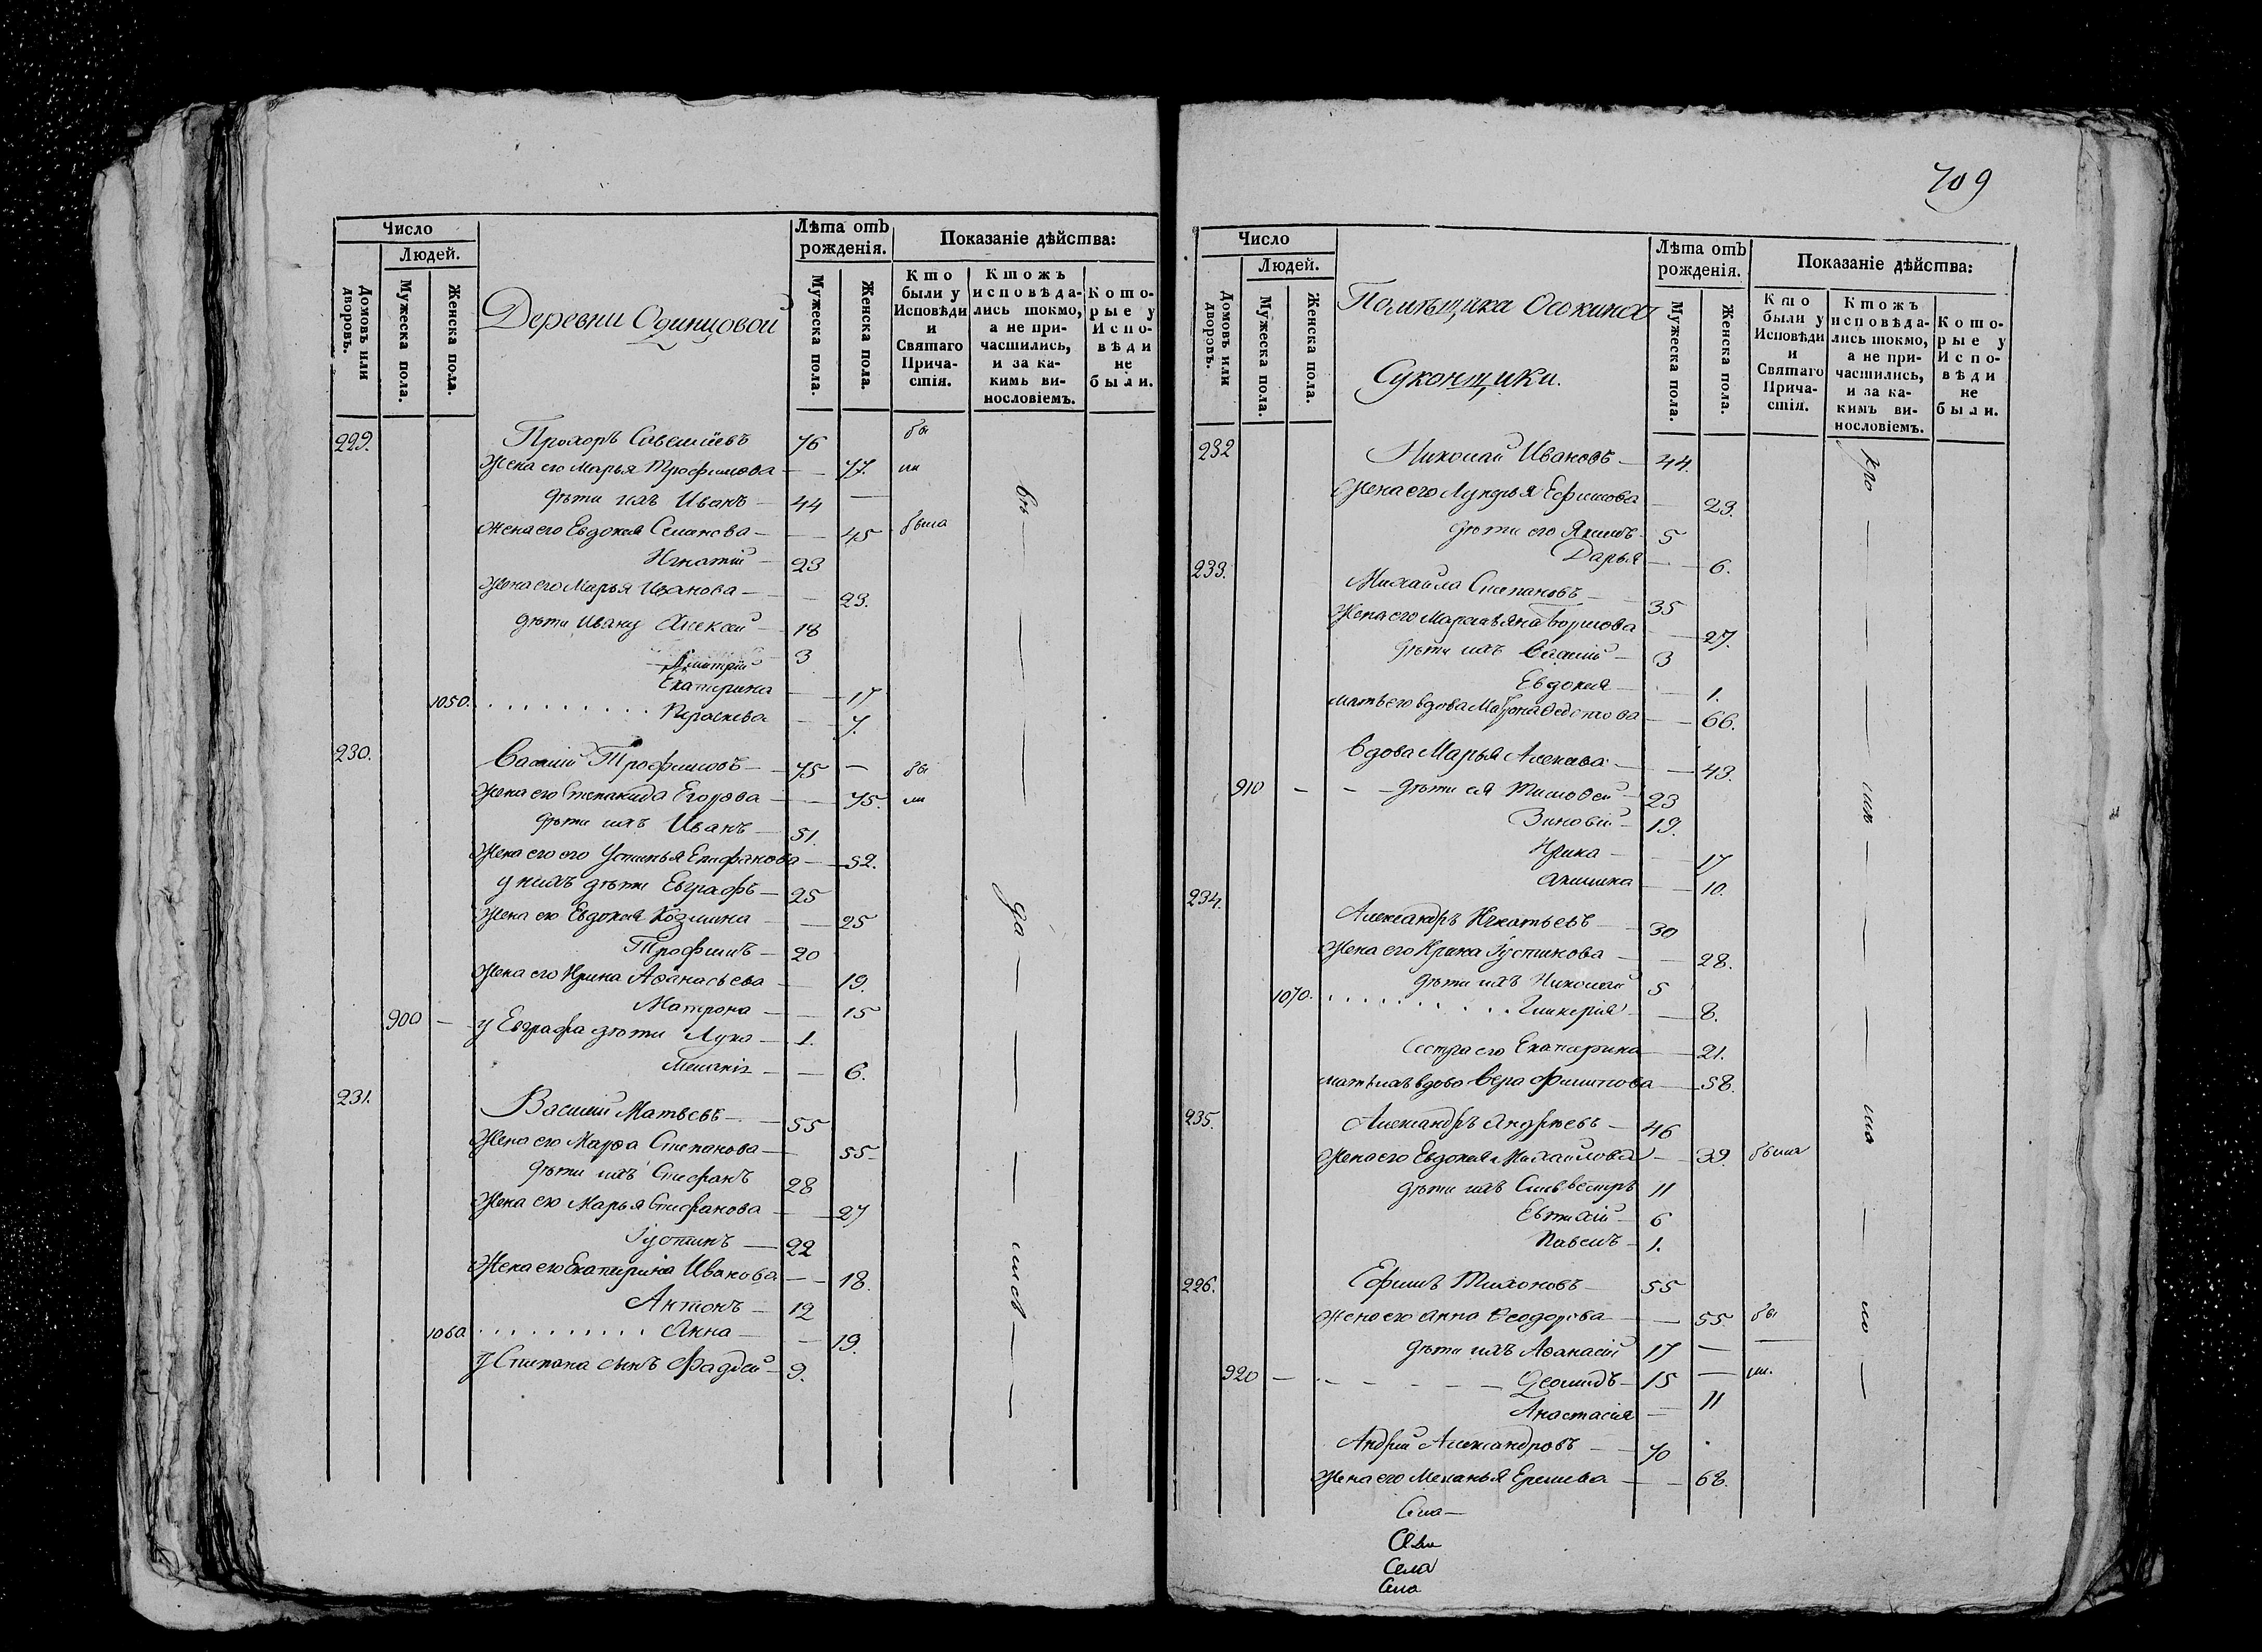 Число
Людей.
Домовъ или дворовъ.
Мужеска пола.
Женска пола.
Деревни Одинцовой
Лѣта отъ рожденія.
Мужеска пола.
Женска пола.
Показаніе дѣйства:
Кто были у Исповѣди и Святаго Прича-стія.
Ктожъ исповѣда-лись токмо, а не при-частились, и за ка-кимъ ви-нословіемъ.
Кото-рые у Испо-вѣди не были.
229. Прохоръ Савельевъ 76 бы
Жена его Марья Трофимова — — 77. ли
дѣти ихъ Иванъ — 44 —
Жена его Евдокея Семенова — — 45 была
Игнатій — 23
Жена его Марья Иванова — — 23.
дѣти Ивану Алексей — 18
Дмитрій 3
Екатерина — — 17
1050. . . . . . . . . . . Прасковья — — 7.
230. Василій Трофимовъ — 75 — бы
Жена его Степанида Егорова — — 75. ли
дѣти ихъ Иванъ — 51.
Жена его его Устинья Епифанова — — 52.
у нихъ дѣти Евграфъ — 25
Жена его Евдокея Козмина — — 25
Трофимъ — 20
Жена его Ирина Аѳанасьева — — 19.
Матрона — — 15
900 — у Евграфа дѣти Лука — 1.
— — 6.
231. Василій Матвеевъ — 55
Жена его Марѳа Степанова — — 55
дѣти ихъ Стефанъ 28
Жена его Марья Стефанова — — 27
Іустинъ — 22
Жена его Екатерина Иванова — — 18.
Антонъ — 12
1060 . . . . . . . . . . Анна — — 19.
у Степана сынъ Фаддей — 9.
709
Число
Людей.
Домовъ или дворовъ.
Мужеска пола.
Женска пола.
Помѣщика Осокина
Суконщики.
Лѣта отъ рожденія.
Мужеска пола.
Женска пола.
Показаніе дѣйства:
Кто были у Исповѣди и Святаго Прича-стія.
Ктожъ исповѣда-лись токмо, а не при-частились, и за ка-кимъ ви-нословіемъ.
Кото-рые у Испо-вѣди не были.
232 Николай Ивановъ — 44.
Жена его Лукерья Ефимова — 23.
дѣти его Якимъ 5
Дарья — — 6.
233. Михайла Степановъ — 35
Жена его — — 27.
дѣти ихъ Василій — 3
Евдокея — — 1.
мать его вдова Матрона — — 66.
вдова Марья Алексеева — — 43.
910 — — — дѣти ея Тимоѳей — 23
Зиновій — 19.
Ирина — — 17
Акилина — — 10.
234. Александръ Игнатьевъ — 30
Жена его Ирина Іустинова — — 28.
дѣти ихъ Николай 5
1070. . . . . . . . . . . Гликерія — — 8.
Сестра его Екатерина — — 21.
мать ихъ вдова Вера Филипова — — 58.
235. Александръ Андреевъ — 46
Жена его Евдокея Михайлова — — 39. была
дѣти ихъ Сильвестръ 11
Евтихій — 6
Павелъ — 1.
226. Ефимъ Тихоновъ — 55
Жена его Анна Ѳеодорова — — 55. бы
дѣти ихъ Аѳанасій 17 — —
920 — — — — — — Леонидъ — 15 — ли.
Анастасія — 11
Андрей Александровъ — 70
Жена его Меланья — — 68.
Села —
Села
Села
Села